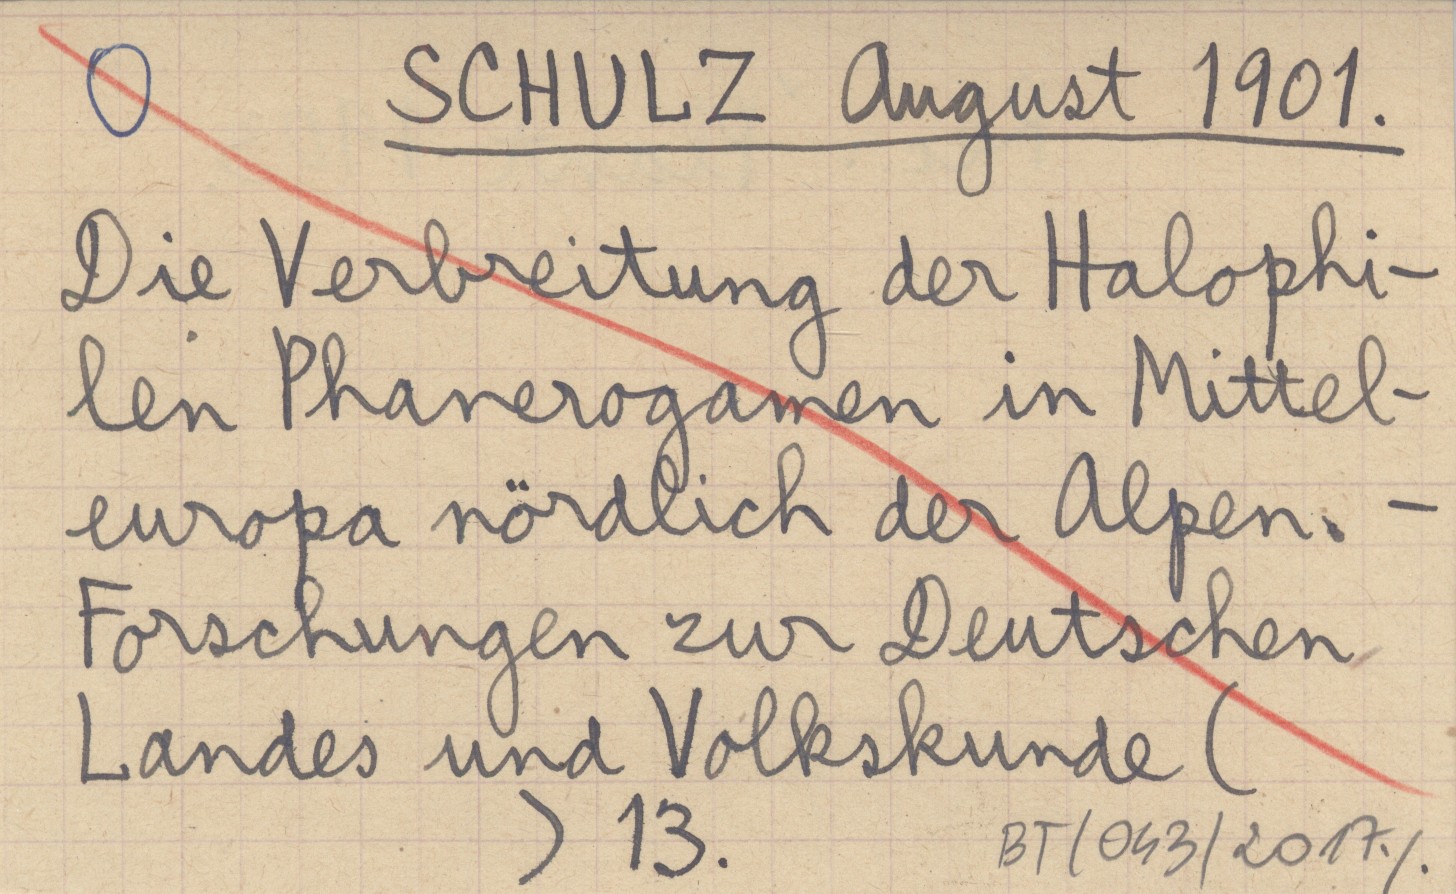 O SCHULZ August 1901.
Die Verbreitung der Halophi-
len Phanerogamen in Mittel-
europa nördlich der Alpen. –
Forschungen zur Deutschen
Landes und Volkskunde (
) 13.
BT/043/2017./.